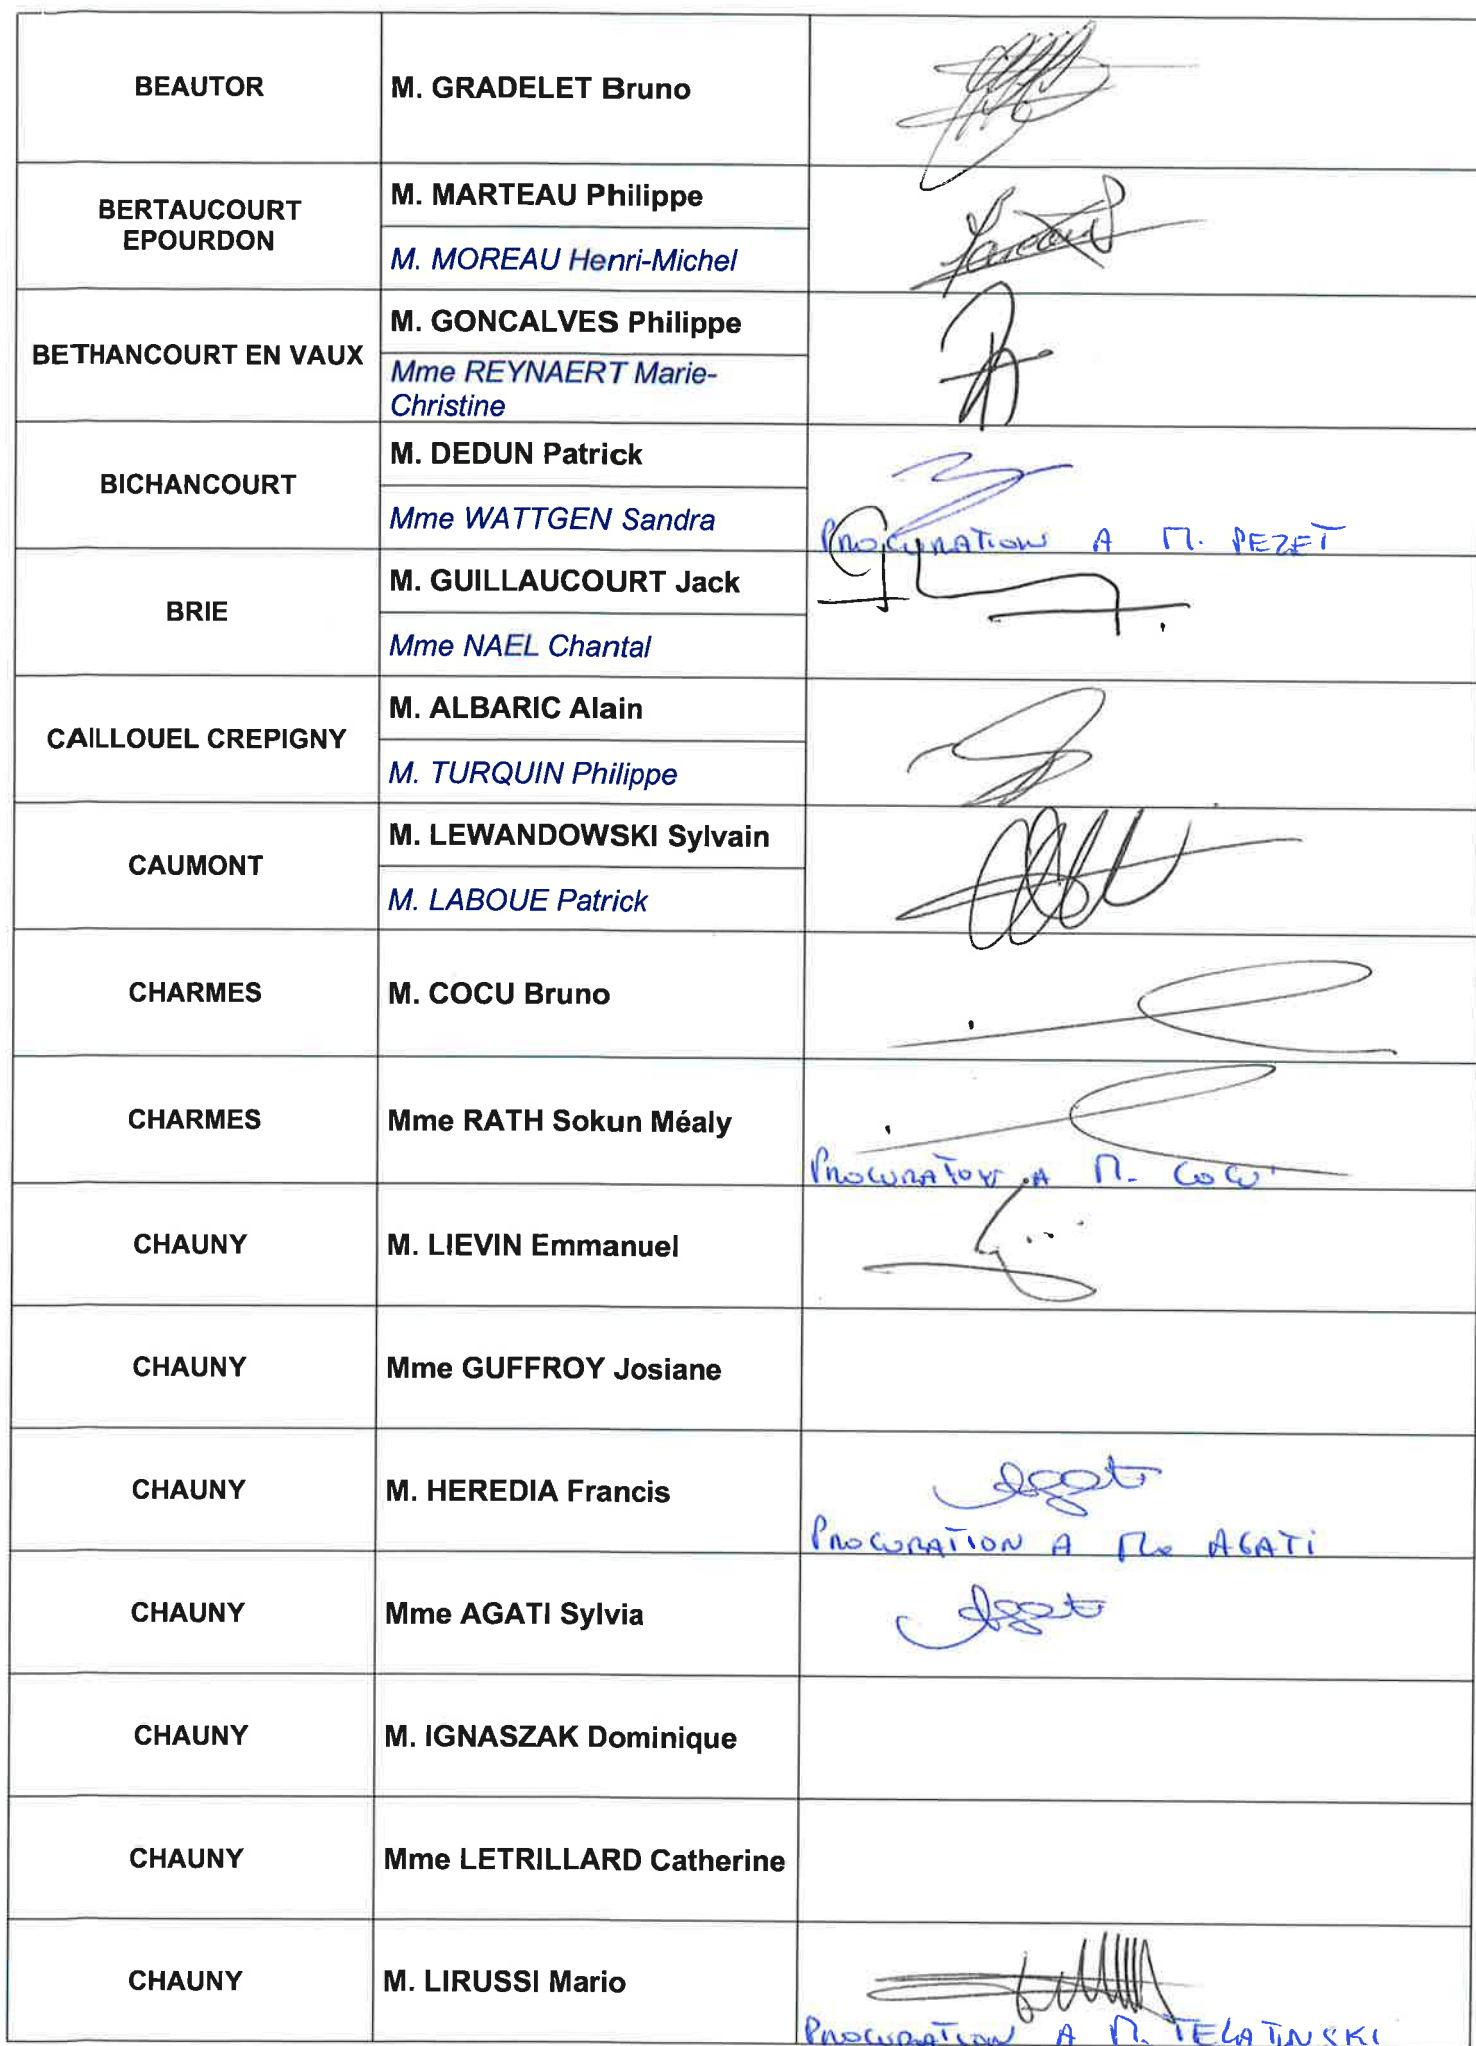 BEAUTOR
M. GRADELET Bruno
BERTAUCOURT
EPOURDON
M. MARTEAU Philippe
M. MOREAU Henri-Michel
BETHANCOURT EN VAUX
M. GONCALVES Philippe
Mme REYNAERT Marie-
Christine
BICHANCOURT
M. DEDUN Patrick
Mme WATTGEN Sandra
PROCURATION A M. PEZET
BRIE
M. GUILLAUCOURT Jack
Mme NAEL Chantal
CAILLOUEL CREPIGNY
M. ALBARIC Alain
M. TURQUIN Philippe
CAUMONT
M. LEWANDOWSKI Sylvain
M. LABOUE Patrick
CHARMES
M. COCU Bruno
CHARMES
Mme RATH Sokun Méaly
PROCURATION A M. COCU
CHAUNY
M. LIEVIN Emmanuel
CHAUNY
Mme GUFFROY Josiane
CHAUNY
M. HEREDIA Francis
Agati
PROCURATION A Me AGATI
CHAUNY
Mme AGATI Sylvia
Agati
CHAUNY
M. IGNASZAK Dominique
CHAUNY
Mme LETRILLARD Catherine
CHAUNY
M. LIRUSSI Mario
PROCURATION A M. TELATINSKI